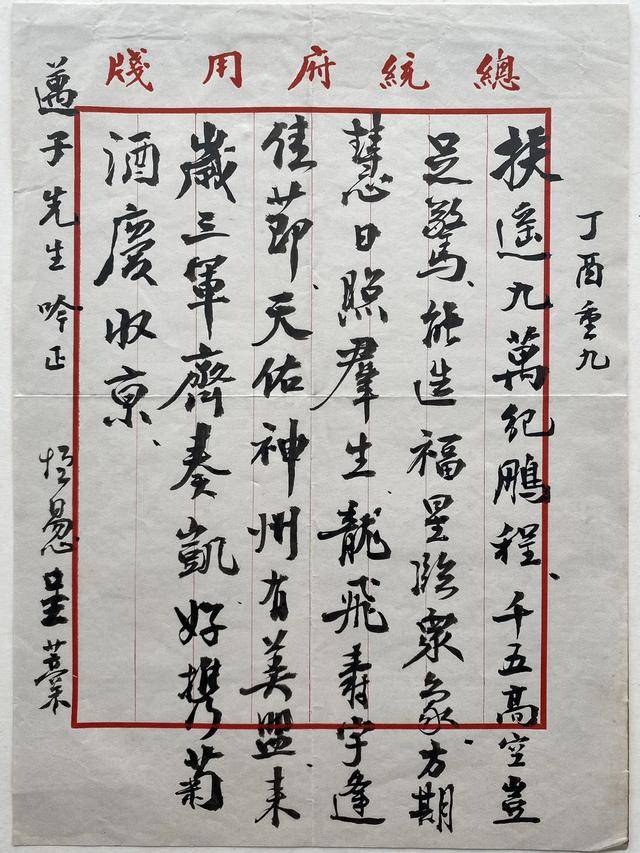 總統府用牋
丁酉重九
扶遙九萬紀鵬程、千五高空豈
足驚、能造福星臨衆象、方期
慧日照羣生、龍飛壽宇逢
佳節、天佑神州有美盟、來
歲三軍齊奏凱、好携菊
酒慶收京、
邁子先生吟正 恒惕呈藁